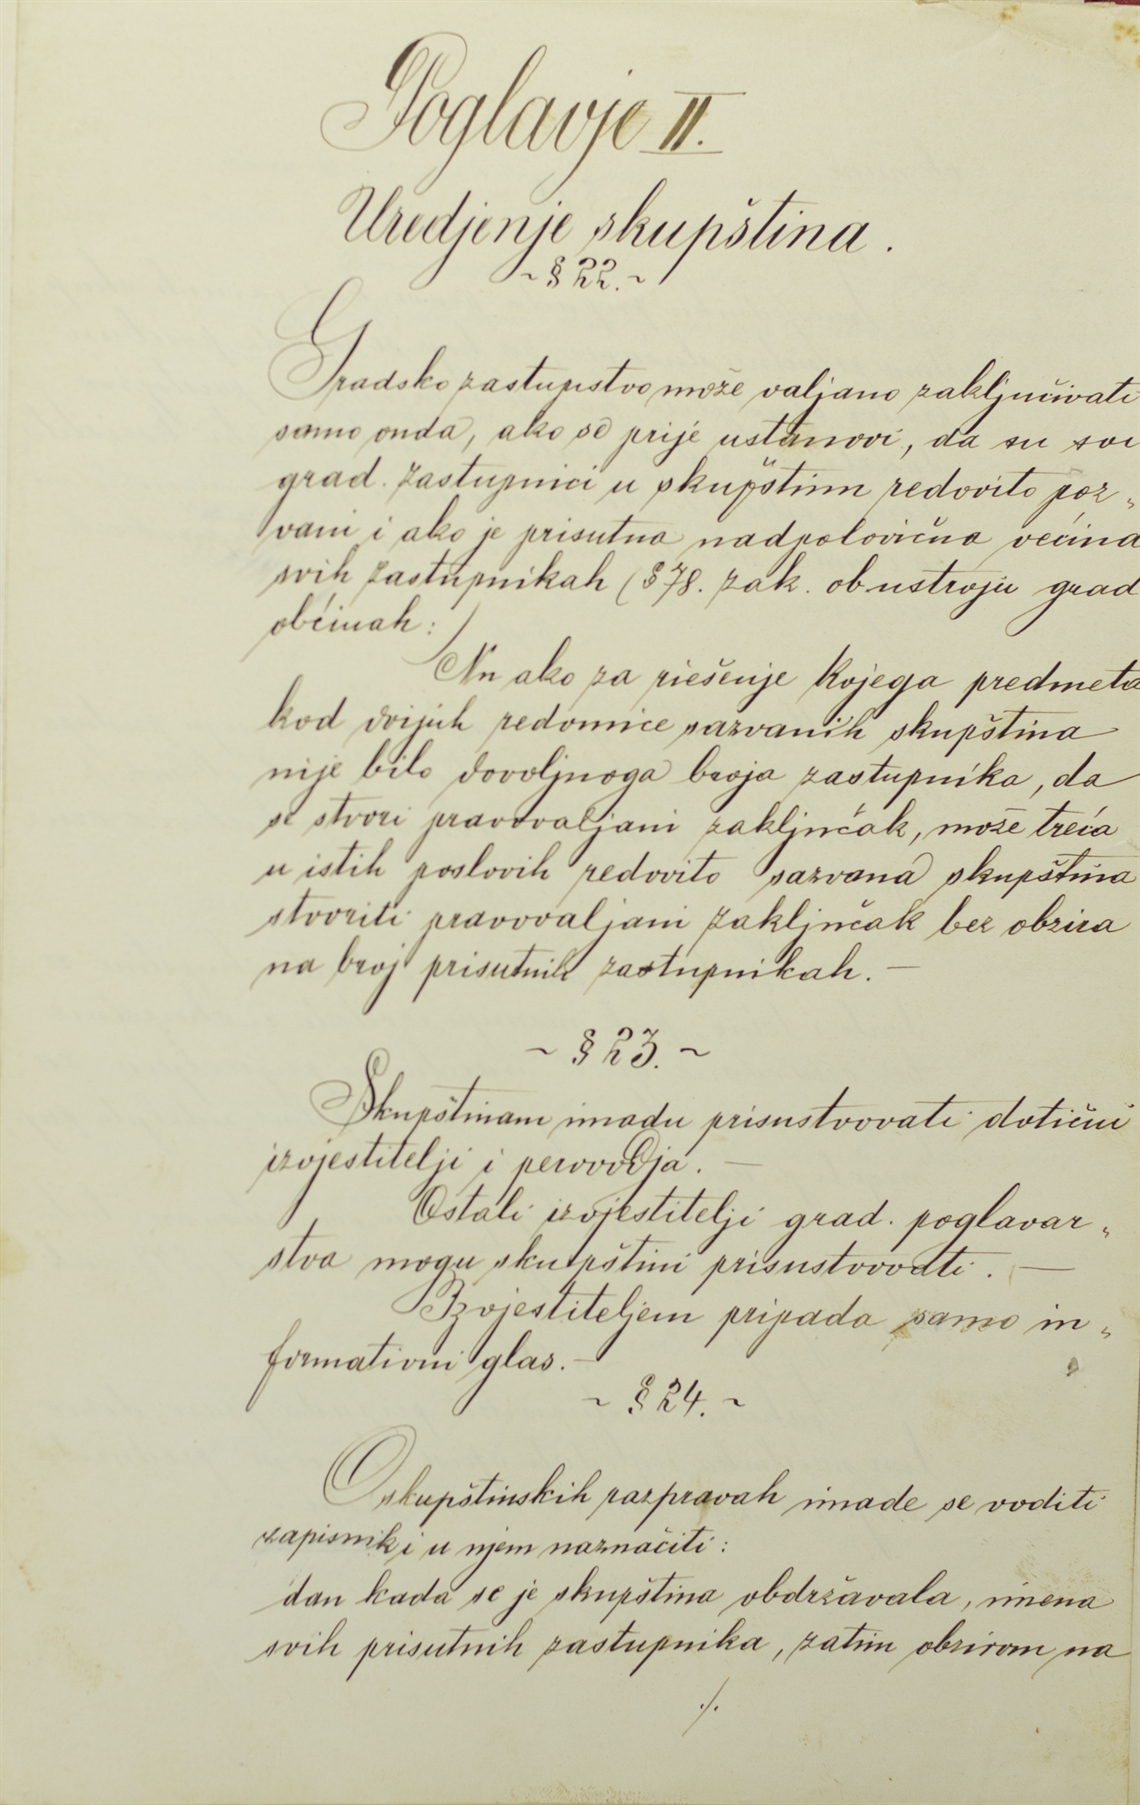 Poglavje II.
Uredjenje skupština.
~ § 22. ~
Gradsko zastupstvo može valjano zaključivati
samo onda, ako se prije ustanovi, da su svi
grad. zastupnici u skupštinu redovito poz„
vani i ako je prisutna nadpolovična većina
svih zastupnikah (§ 78. zak. ob ustroju grad
obćinah:)
Nu ako za riešenje kojega predmeta
kod dvijuh redomice sazvanih skupština
nije bilo dovoljnoga broja zastupnika, da
se stvori pravovaljani zaključak, može treća
u istih poslovih redovito sazvana skupština
stvoriti pravovaljani zaključak bez obzira
na broj prisutnih zastupnikah. —
~ § 23. ~
Skupštinam imadu prisustvovati dotični
izvjestitelji i perovodja. —
Ostali izvjestitelji grad. poglavar„
stva mogu skupštini prisustvovati. —
Izvjestiteljem pripada samo in„
formativni glas. —
~ § 24. ~
O skupštinskih razpravah imade se voditi
zapisnik i u njem naznačiti:
dan kada se je skupština obdržavala, imena
svih prisutnih zastupnika, zatim obzirom na
./.